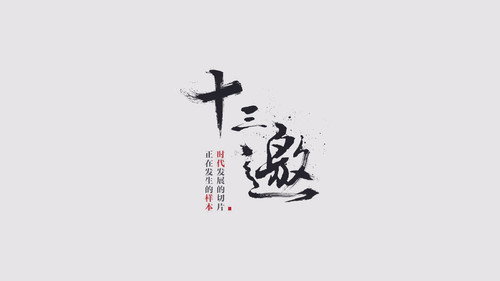 十三邀
时代发展的切片
正在发生的样本